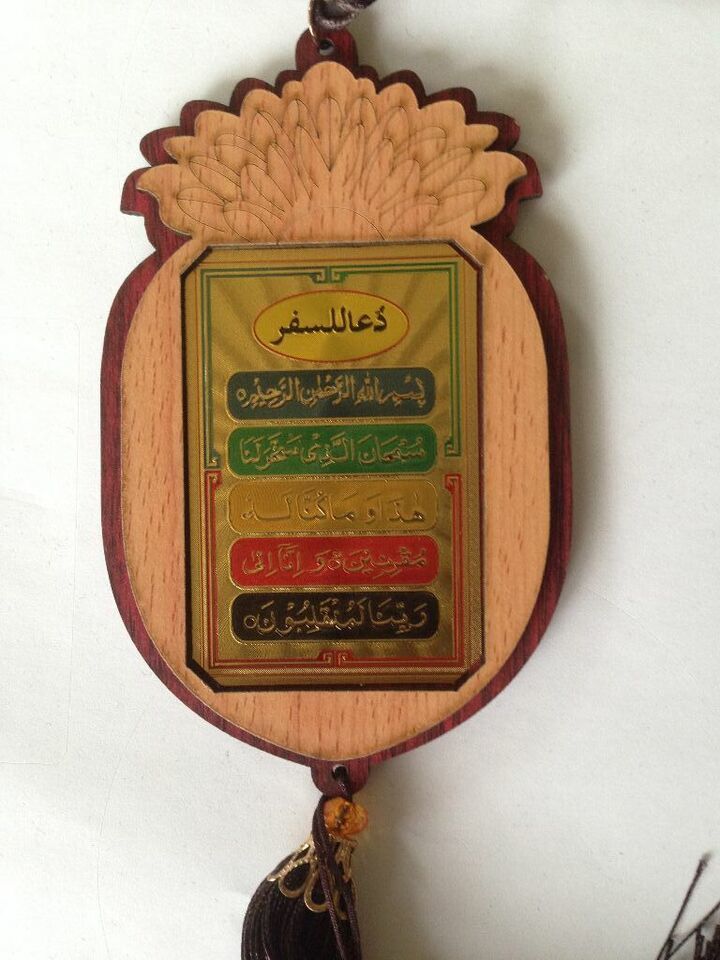 دُعاللسفر
بِسْمِ اللهِ الرَّحْمٰنِ الرَّحِيْمِ ہ
سُبْحَانَ الَّذِىْ سَخَّرَلَنَا
هٰذَا وَمَاكُنَّالَهٗ
مُقْرِنِيْنَ ہ وَ اِنَّا اِلٰى
رَبِّنَالَمُنْقَلِبُوْنَ ہ